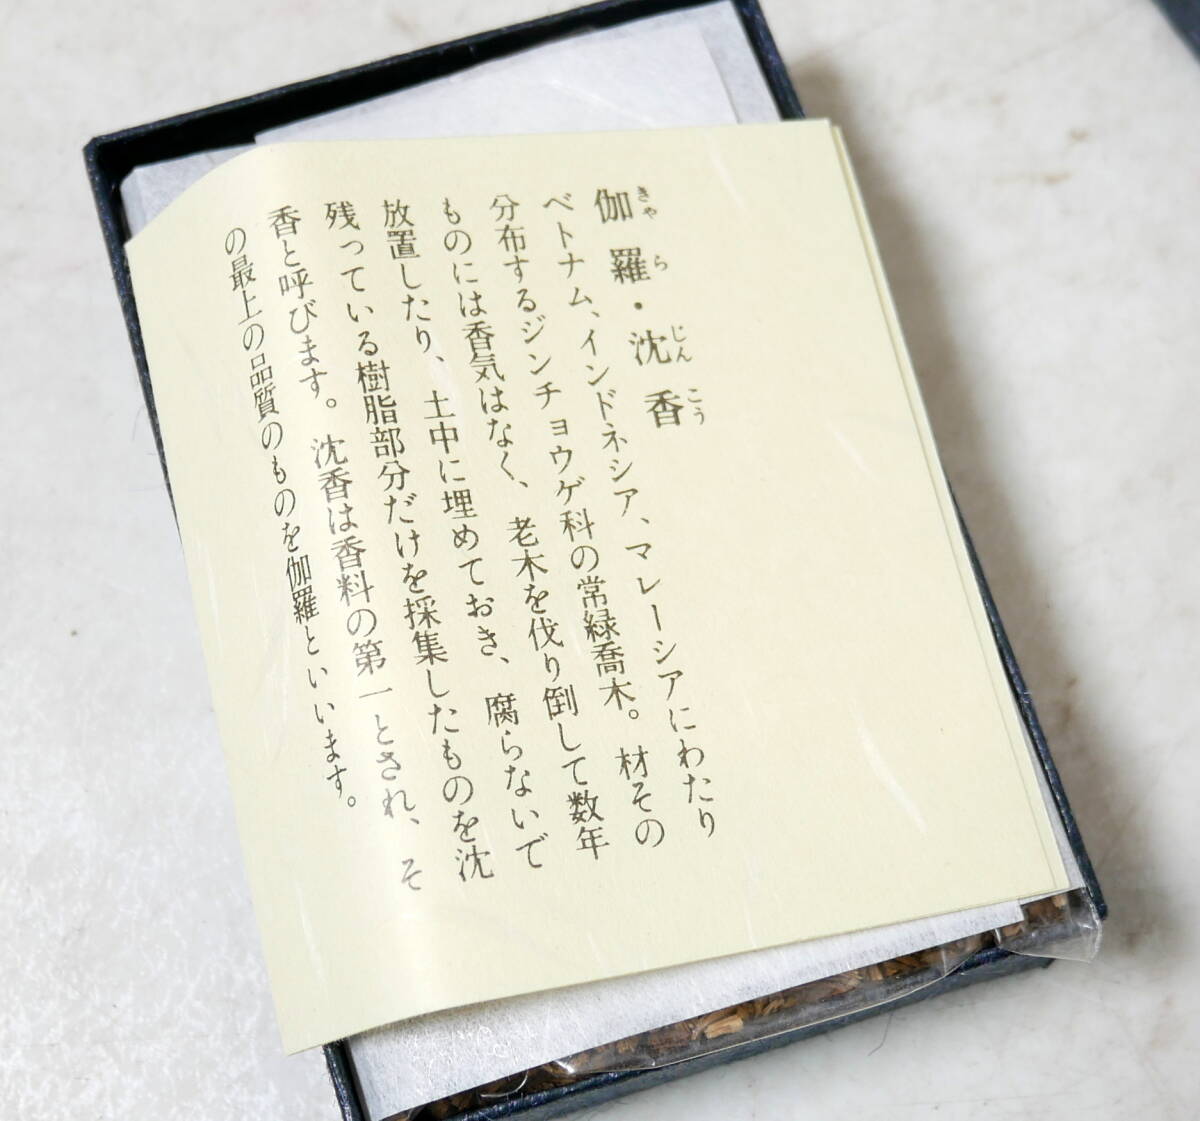 伽羅・沈香
きゃらじんこう
ベトナム、インドネシア、マレーシアにわたり
分布するジンチョウゲ科の常緑喬木。材その
ものには香気はなく、老木を伐り倒して数年
放置したり、土中に埋めておき、腐らないで
残っている樹脂部分だけを採集したものを沈
香と呼びます。沈香は香料の第一とされ、そ
の最上の品質のものを伽羅といいます。